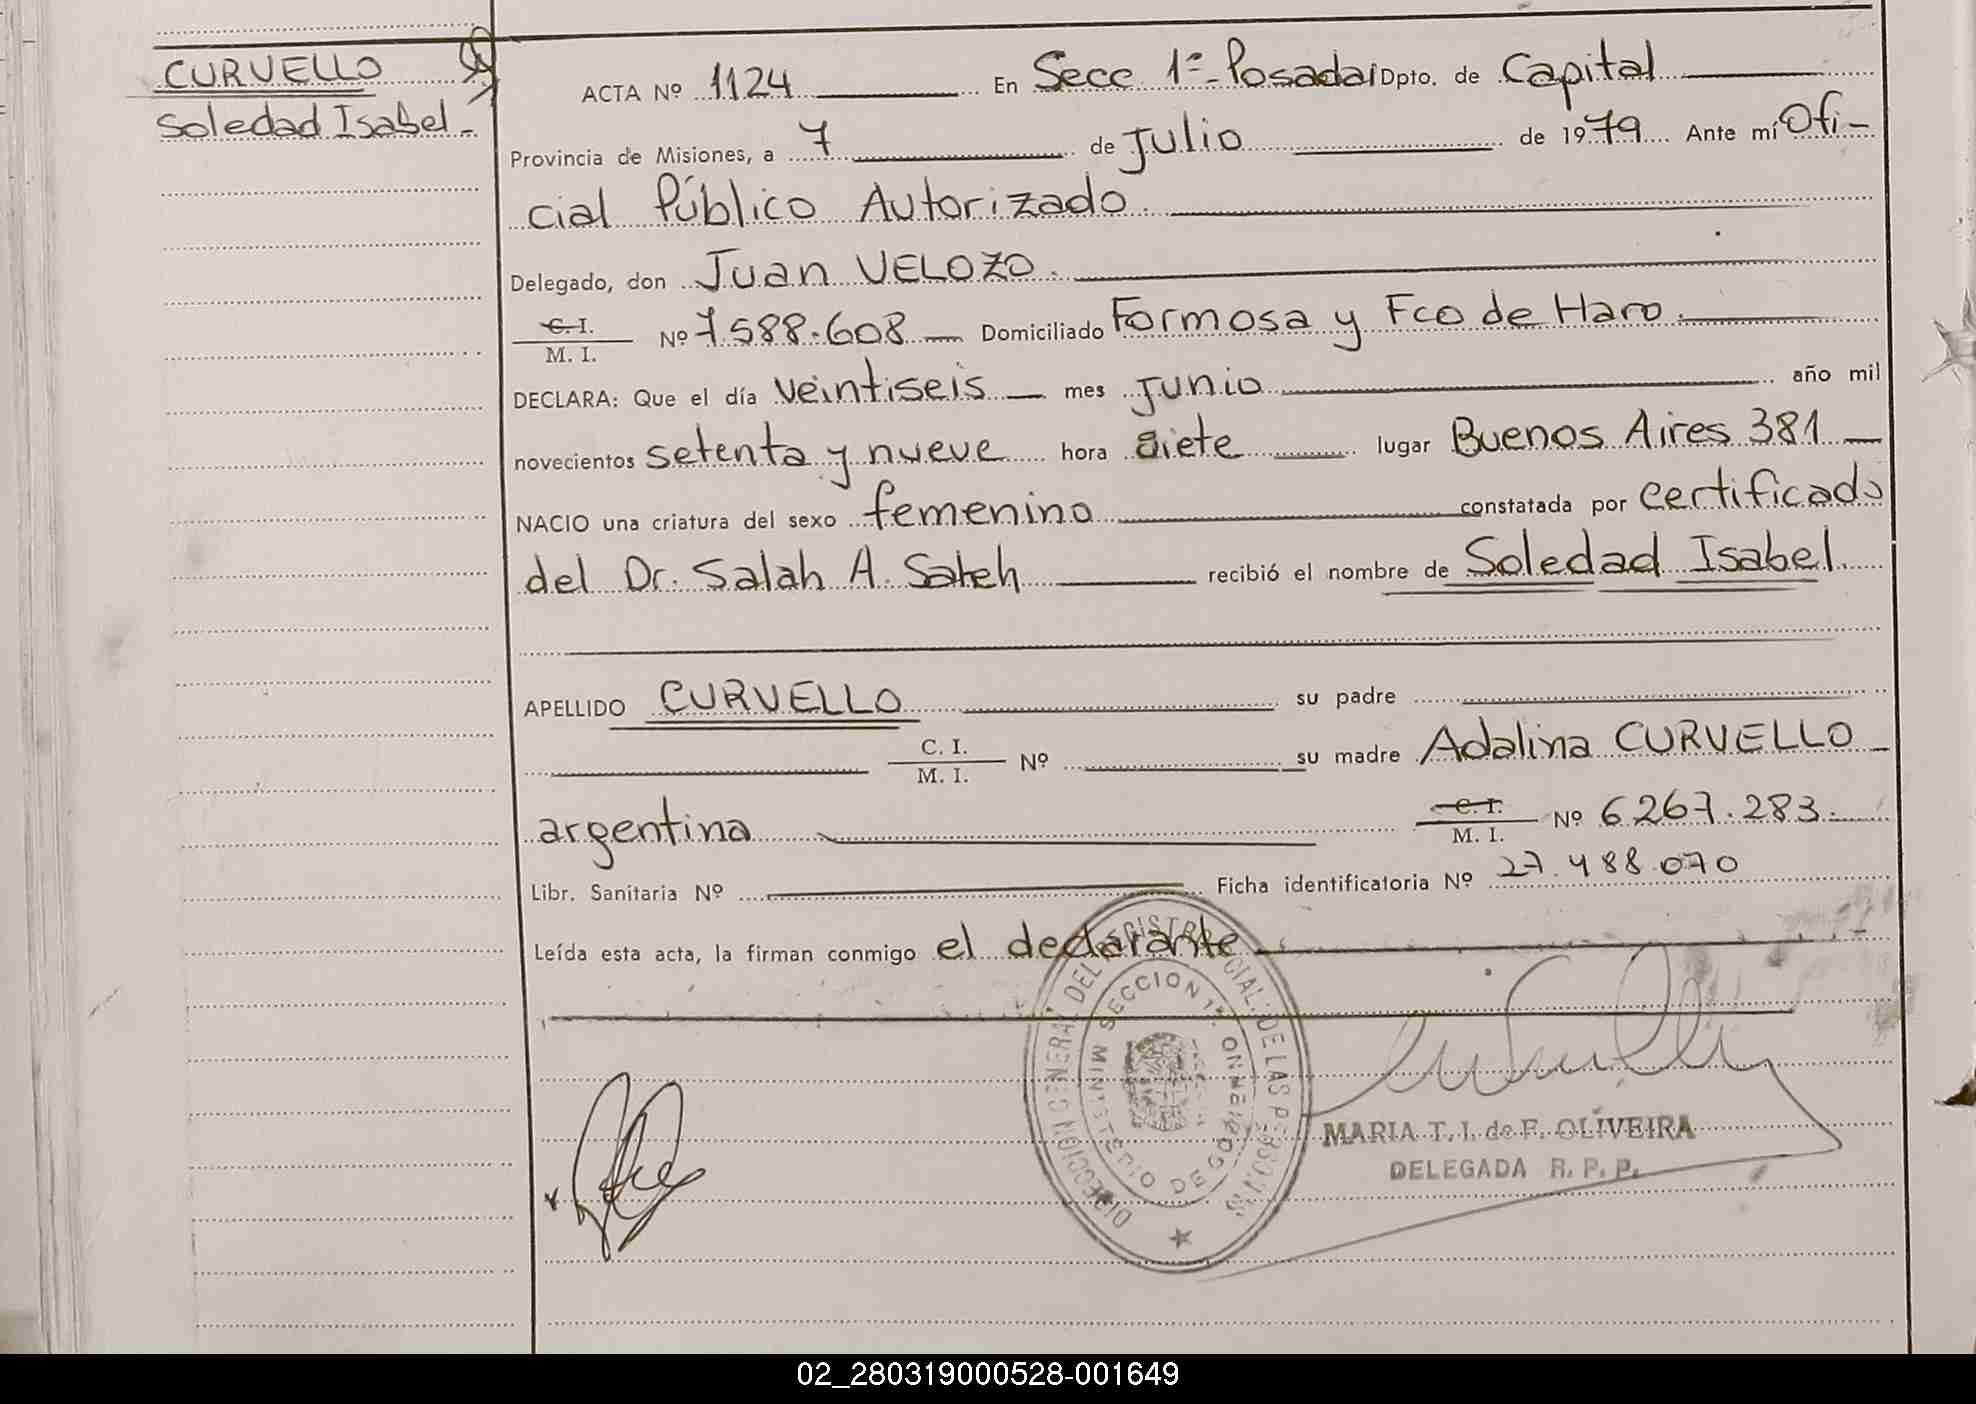 CURVELLO
Soledad Isabel -
ACTA Nº 1124 En Secc 1ª - Posadas Dpto. de Capital
Provincia de Misiones, a 7 de Julio de 1979 Ante mí Ofi-
cial Público Autorizado.
Delegado, don Juan VELOZO.
C. I.
M. I. Nº 7.588.608 Domiciliado Formosa y Fco de Haro.
DECLARA: Que el día veintiseis mes Junio año mil
novecientos setenta y nueve hora siete lugar Buenos Aires 381
NACIO una criatura del sexo femenino constatada por certificado
del Dr. Salah A. Saleh recibió el nombre de Soledad Isabel
APELLIDO CURVELLO su padre
C. I.
M. I. Nº su madre Adalina CURVELLO
argentina
C. I.
M. I. Nº 6267.283.
Libr. Sanitaria Nº Ficha identificatoria Nº 27.488.070
Leída esta acta, la firman conmigo el declarante
DIRECCION GENERAL DEL REGISTRO PROVINCIAL DE LAS PERSONAS
SECCION 1ª
MINISTERIO DE GOBIERNO
MARIA T. I. de F. OLIVEIRA
DELEGADA R. P. P.
02_280319000528-001649